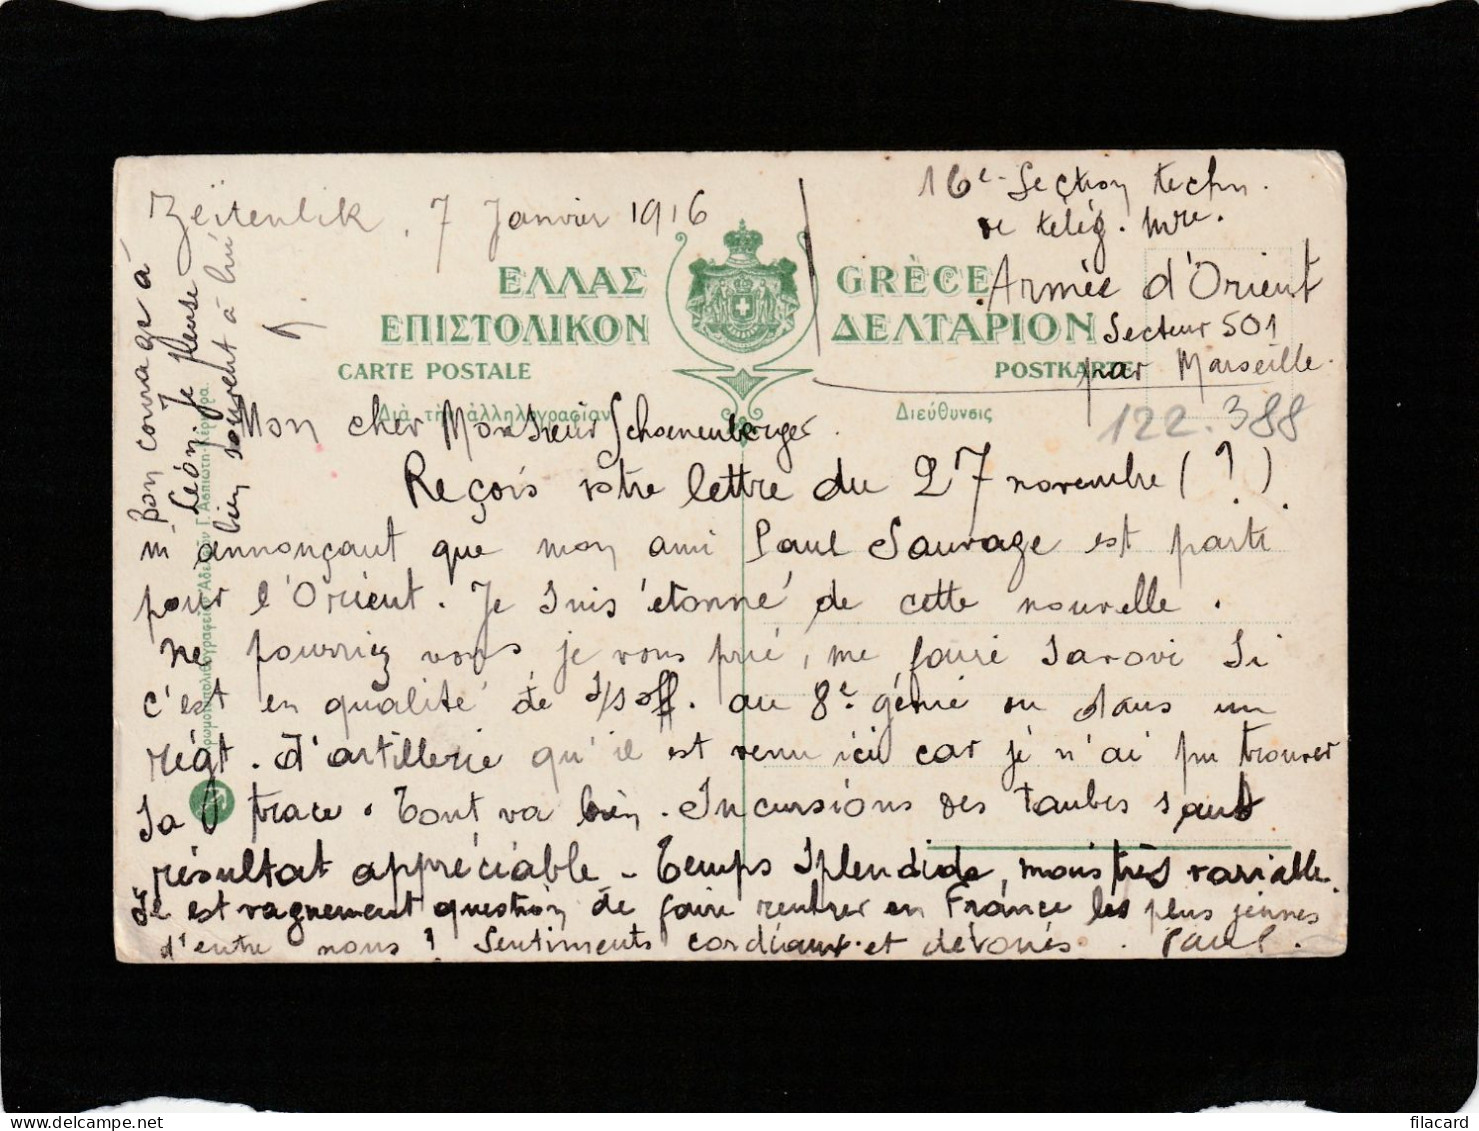 Zeïtenlik, 7 Janvier 1916
16e Section techn.
de télég. mre.
Armée d'Orient
Secteur 501
par Marseille.
ΕΛΛΑΣ GRÈCE
ΕΠΙΣΤΟΛΙΚΟΝ ΔΕΛΤΑΡΙΟΝ
CARTE POSTALE POSTKARTE
Διὰ τὴν ἀλληλογραφίαν Διεύθυνσις
122.388
Mon cher Monsieur Schoenenberger.
Reçois votre lettre du 27 novembre (?)
m'annonçant que mon ami Paul Sauvage est parti
pour l'Orient. Je suis étonné de cette nouvelle.
Ne pourriez vous je vous prié, me faire savoir si
c'est en qualité de s/soff. au 8e génie ou dans un
régt. d'artillerie qu'il est venu ici car je n'ai pu trouver
sa trace. Tout va bien. Incursions des Taubes sans
résultat appréciable - Temps splendide, mais très variable.
Il est vaguement question de faire rentrer en France les plus jeunes
d'entre nous? Sentiments cordiaux et dévoués. Paul.
Bon courage à
Léon. Je pense
bien souvent à lui
filacard